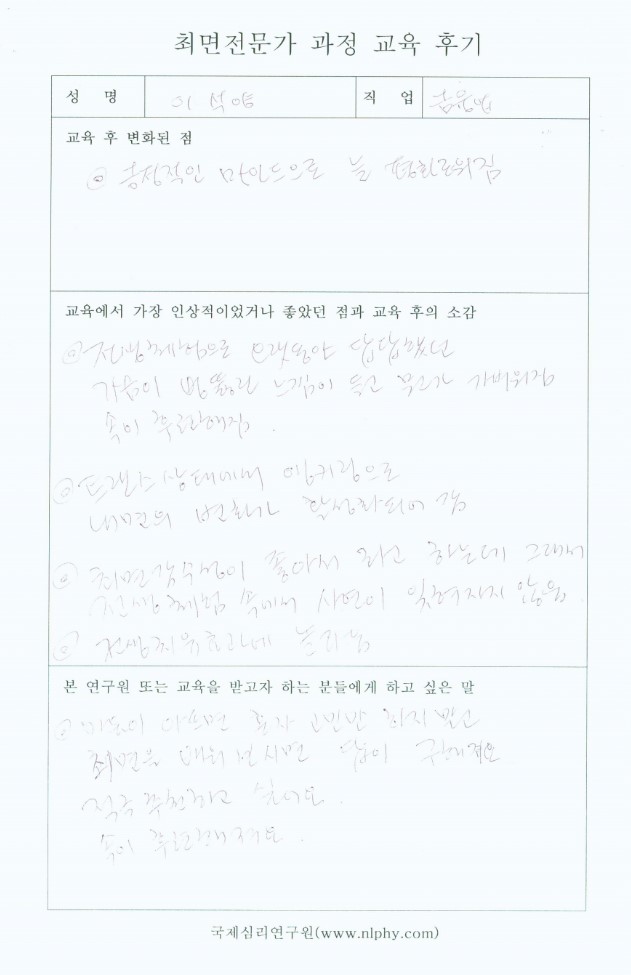 최면전문가 과정 교육 후기
성 명 이 석영 직 업
교육 후 변화된 점
◎ 긍정적인 마인드으로 늘 평화로워짐
교육에서 가장 인상적이었거나 좋았던 점과 교육 후의 소감
◎ 전생체험으로 오랫동안 답답했던
가슴이 뻥뚫린 느낌이 들고 머리가 가벼워짐
속이 후련해짐.
◎ 트랜스상태에서 앵커링으로
내면의 변화가 활성화되어 감
◎ 최면감수성이 좋아서 라고 하는데 그래서
전생체험 속에서 사연이 잊혀지지 않음.
◎ 전생치유효과에 놀라움
본 연구원 또는 교육을 받고자 하는 분들에게 하고 싶은 말
◎ 마음이 아프면 혼자 고민만 하지말고
최면을 배워 보시면 답이 구해져요
적극 추천하고 싶어요.
속이 후련해져요.
국제심리연구원(www.nlphy.com)